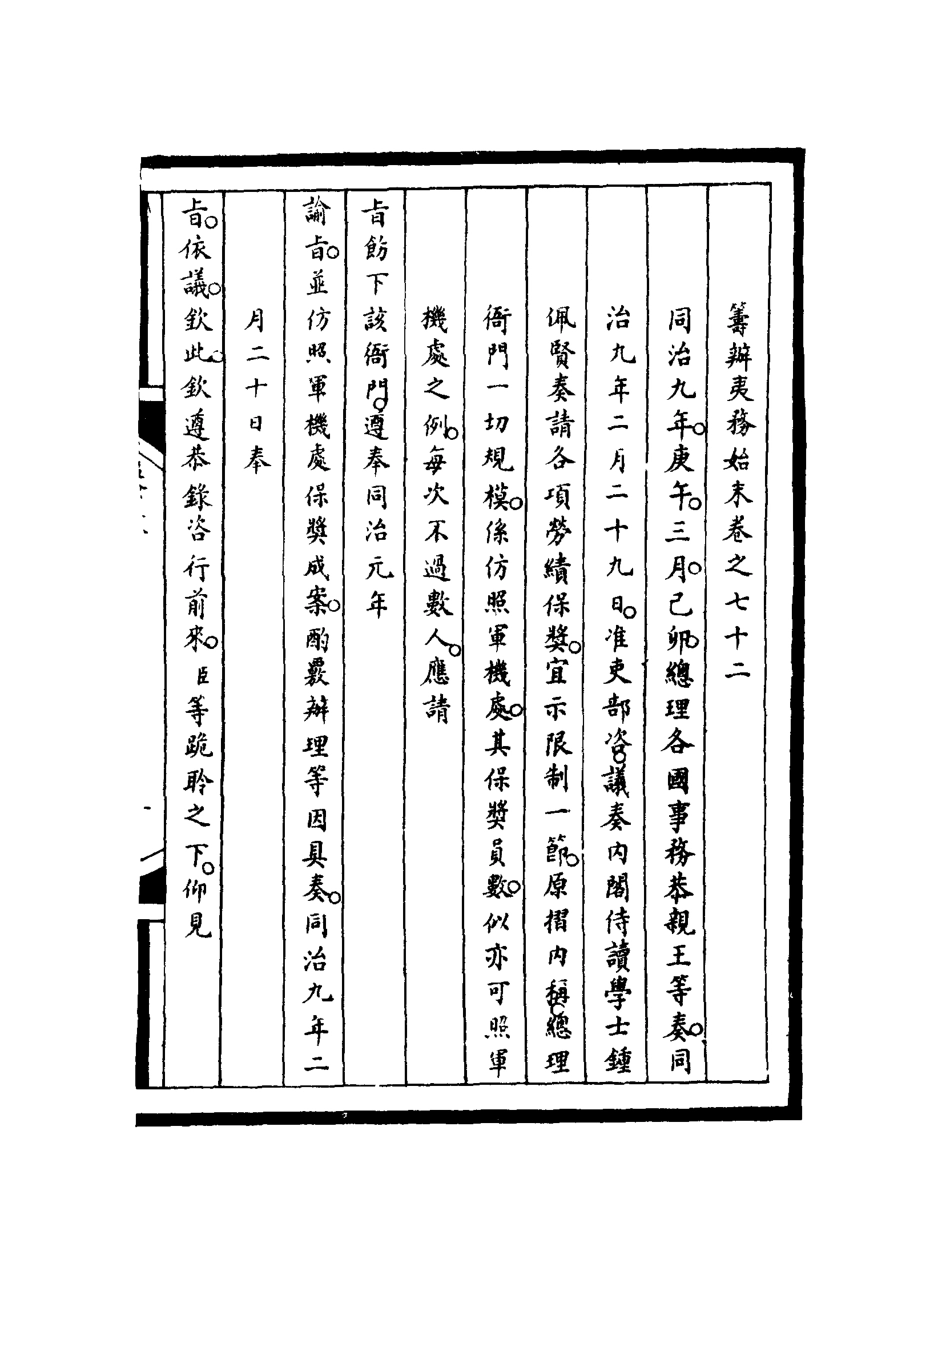 籌辦夷務始末卷之七十二
同治九年。庚午。三月。己卯。總理各國事務恭親王等奏。同
治九年二月二十九日。准吏部咨。議奏內閣侍讀學士鍾
佩賢奏請各項勞績保獎。宜示限制一節。原摺內稱。總理
衙門一切規模。係仿照軍機處。其保獎員數。似亦可照軍
機處之例。每次不過數人。應請
旨飭下該衙門。遵奉同治元年
諭旨。並仿照軍機處保獎成案。酌覈辦理等因具奏。同治九年二
月二十日奉
旨。依議。欽此。欽遵恭錄咨行前來。臣等跪聆之下。仰見